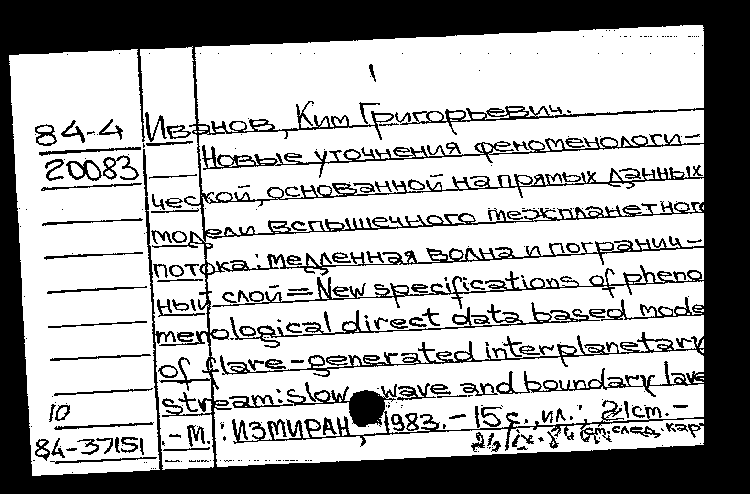 1
84-4 Иванов, Ким Григорьевич.
20083 Новые уточнения феноменологи-
ческой, основанной на прямых данных
модели вспышечного межпланетного
потока: медленная волна и погранич-
ный слой = New specifications of pheno
menological direct data based mode
of flare-generated interplanetary
stream: slow wave and boundary laye
10
84-37151 .- М.: ИЗМИРАН, 1983. - 15 с., ил.; 21 см. -
см. след. кар